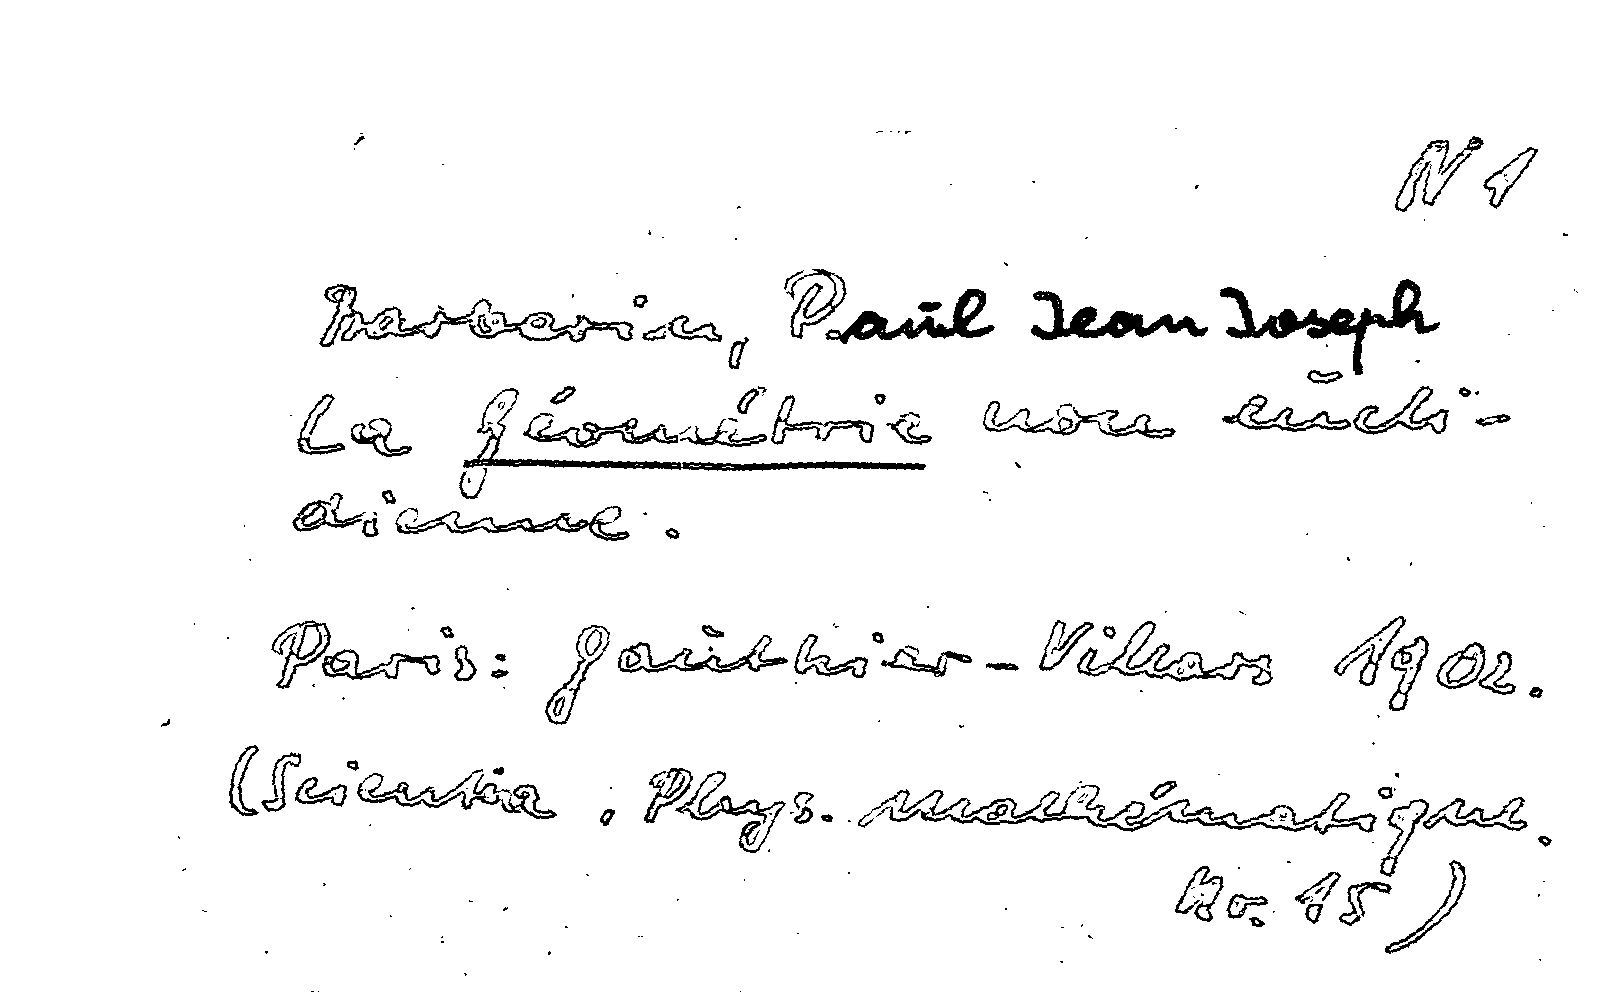 N 1
Barbarin, Paul Jean Joseph
La Géométrie non eucli-
dienne.
Paris: Gauthier-Villars 1902.
(Scientia. Phys. mathématique.
Nr. 15)